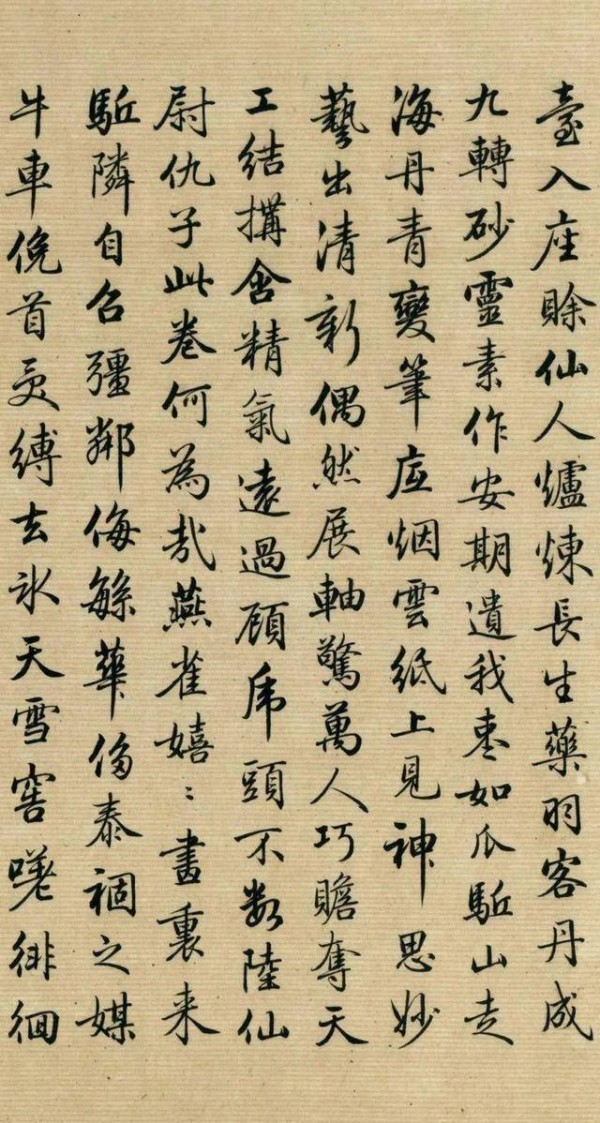 臺入座賖仙人爐煉長生藥羽客丹成
九轉砂靈素作安期遺我棗如瓜駈山走
海丹青變筆底烟雲紙上見神思妙
藝出清新偶然展軸驚萬人巧瞻奪天
工結搆含精氣遠過顧虎頭不數陸仙
尉仇子此卷何為哉燕雀嬉〻畫裏来
駈隣自召彊鄰侮緐華侈泰禍之媒
牛車俛首受縛去氷天雪窖嘆徘徊